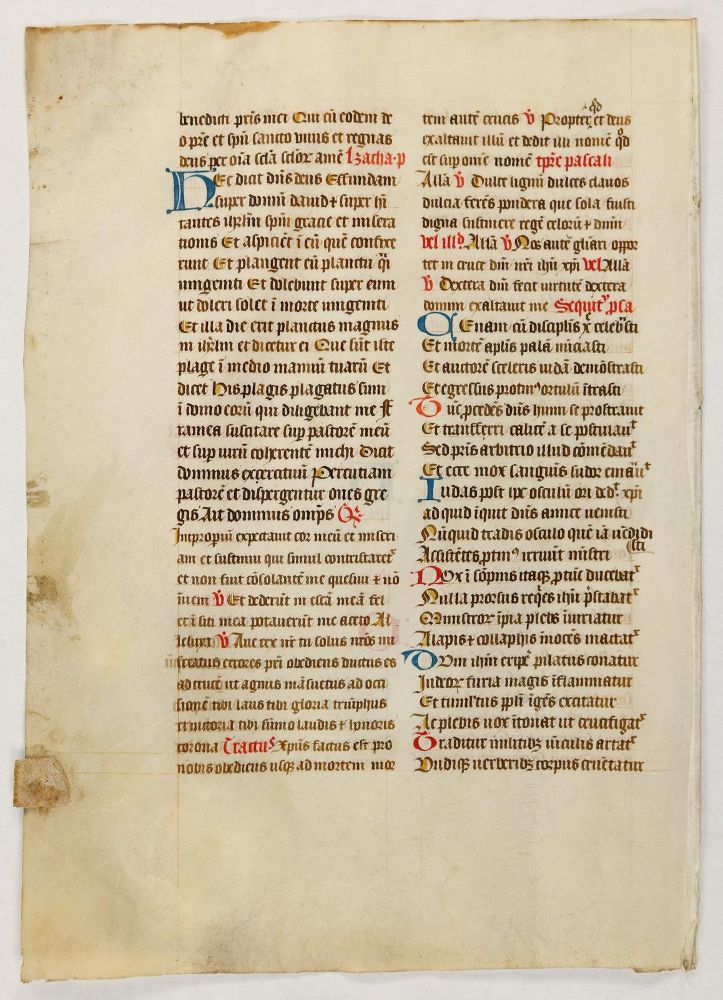 benedicti pr̃is mei Qui cũ eodem de
o pr̃e et spũ sancto viuis et regnas
deus per oĩa sc̃la sc̃lor̃ amẽ l zacha·p
HEc dicit dñs deus Effundam
super domũ dauid ⁊ super hĩ
tantes ihr̃lm spũ gracie et misera
tionis Et aspiciẽt ĩ eũ quẽ confixe
runt Et plangent eũ planctu q̃i
unigeniti Et dolebunt super eum
ut doleri solet ĩ morte unigeniti
Et illa die erit planctus magnus
in ihr̃lm et dicetur ei Que sũt iste
plage ĩ medio manuũ tuarũ Et
dicet His plagis plagatus sum
ĩ domo eorũ qui diligebant me ff
ramea suscitare sup̱ pastorẽ meũ
et sup̱ uirũ coherentẽ michi Dicit
dominus exercituũ Percutiam
pastorẽ et dispergentur oues gre
gis Ait dominus omp̃s
Improp̱iũ expectauit cor meũ et miseri
am et sustinui qui simul contristaret᷑
et non fuit cõsolantẽ me quesiui ⁊ nõ
ĩueni V Et dederũt in escã meã fel
et ĩ siti mea potauerũt me aceto Al
leluya V Aue rex nr̃ tu solus nr̃os mi
seratus errores pr̃i obediens ductus es
ad crucẽ ut agnus mãsuetus ad occi
sionẽ tibi laus tibi gloria triũphus
et victoria tibi sũmo laudis ⁊ honoris
corona Tractus xp̃us factus est pro
nobis obediens usq̃ ad mortem mor
tem autẽ crucis V Propter qd et deus
exaltauit illũ et dedit illi nomẽ qd
est sup̱ omñe nomẽ tp̱r̃e pascali
Allã V Dulce lignũ dulces clauos
dulcia ferẽs pondera que sola fuisti
digna sustinere regẽ celorũ ⁊ dñm
vel illd Allã V Nos autẽ gl̃iari oppor
tet in cruce dñi nr̃i ihũ xp̃i vel Allã
V Dextera dñi fecit uirtutẽ dextera
domini exaltauit me Sequit᷑ psa
CEnam cũ discipl̃is xp̃e celebrasti
Et mortẽ aplĩs palã nũciasti
Et auctorẽ sceleris iudã demõstrasti
Et egressus protinꝰ ortulũ ĩtrasti
Tũc p̱cedẽs dñs humi se prostrauit
Et transferri calicẽ a se postulauit
Sed pr̃is arbitrio illud cõmẽdauit
Et ecce mox sanguinis sudor emanauit
Iudas post ip̃e osculũ ori dedit xp̃i
ad quid ĩquit dñs amice uenisti
Nũquid tradis osculo quẽ iã uẽdidi
sti
Assistẽtes p̱tinꝰ irruũt mĩstri
NOx ĩ sõpnis itaq̃ p̱tiue ducebat᷑
Nulla prorsus req̃es ihũ p̃stabat᷑
Ministror̃ ĩpia plebs iũriatur
Alapis ⁊ collaphis inocẽs mactat᷑
DVm ihm̃ erip̱e pilatus conatur
Iudeor̃ furia magis ĩflammatur
Et tumltus pp̱li ĩgẽs excitatur
Ac plebis uox ĩtonat ut crucifigat᷑
Traditur militibꝫ uĩculis artat᷑
Vndiq̃ uerberibꝫ corpus cruẽtatur